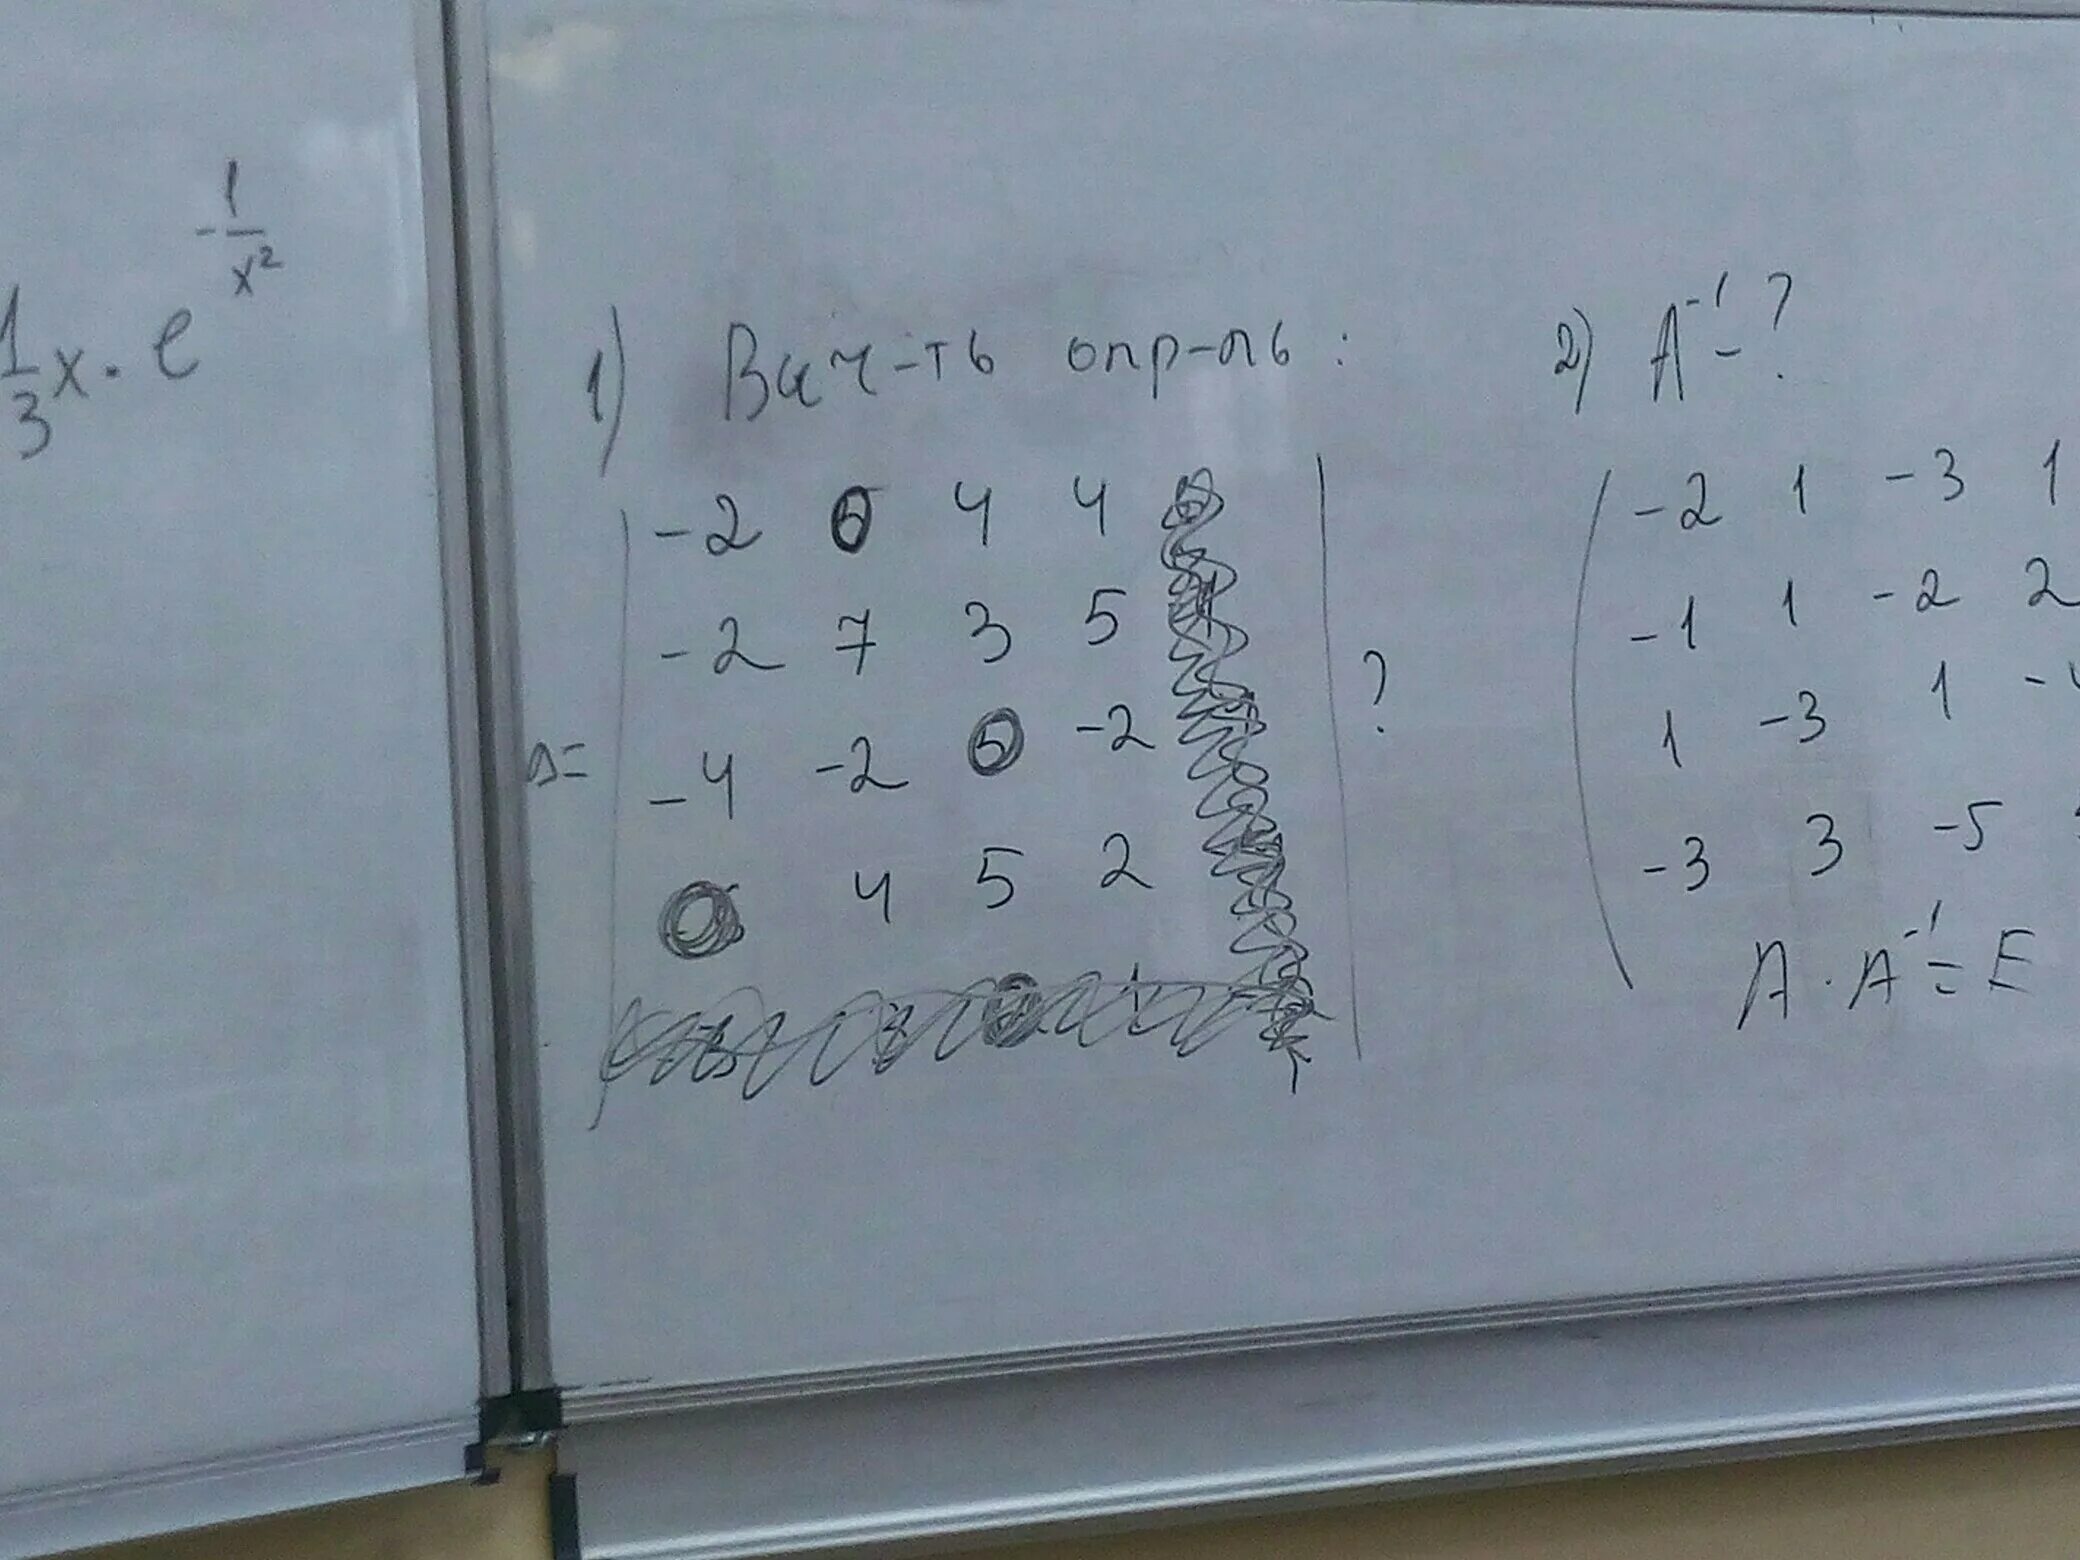 1/3 x · e^(-1/x²)
1) Выч-ть опр-ль:
Δ=
-2 0 4 4
-2 7 3 5
-4 -2 0 -2
0 4 5 2
?
2) A⁻¹ = ?
-2 1 -3 1
-1 1 -2 2
1 -3 1
-3 3 -5
A · A⁻¹ = E